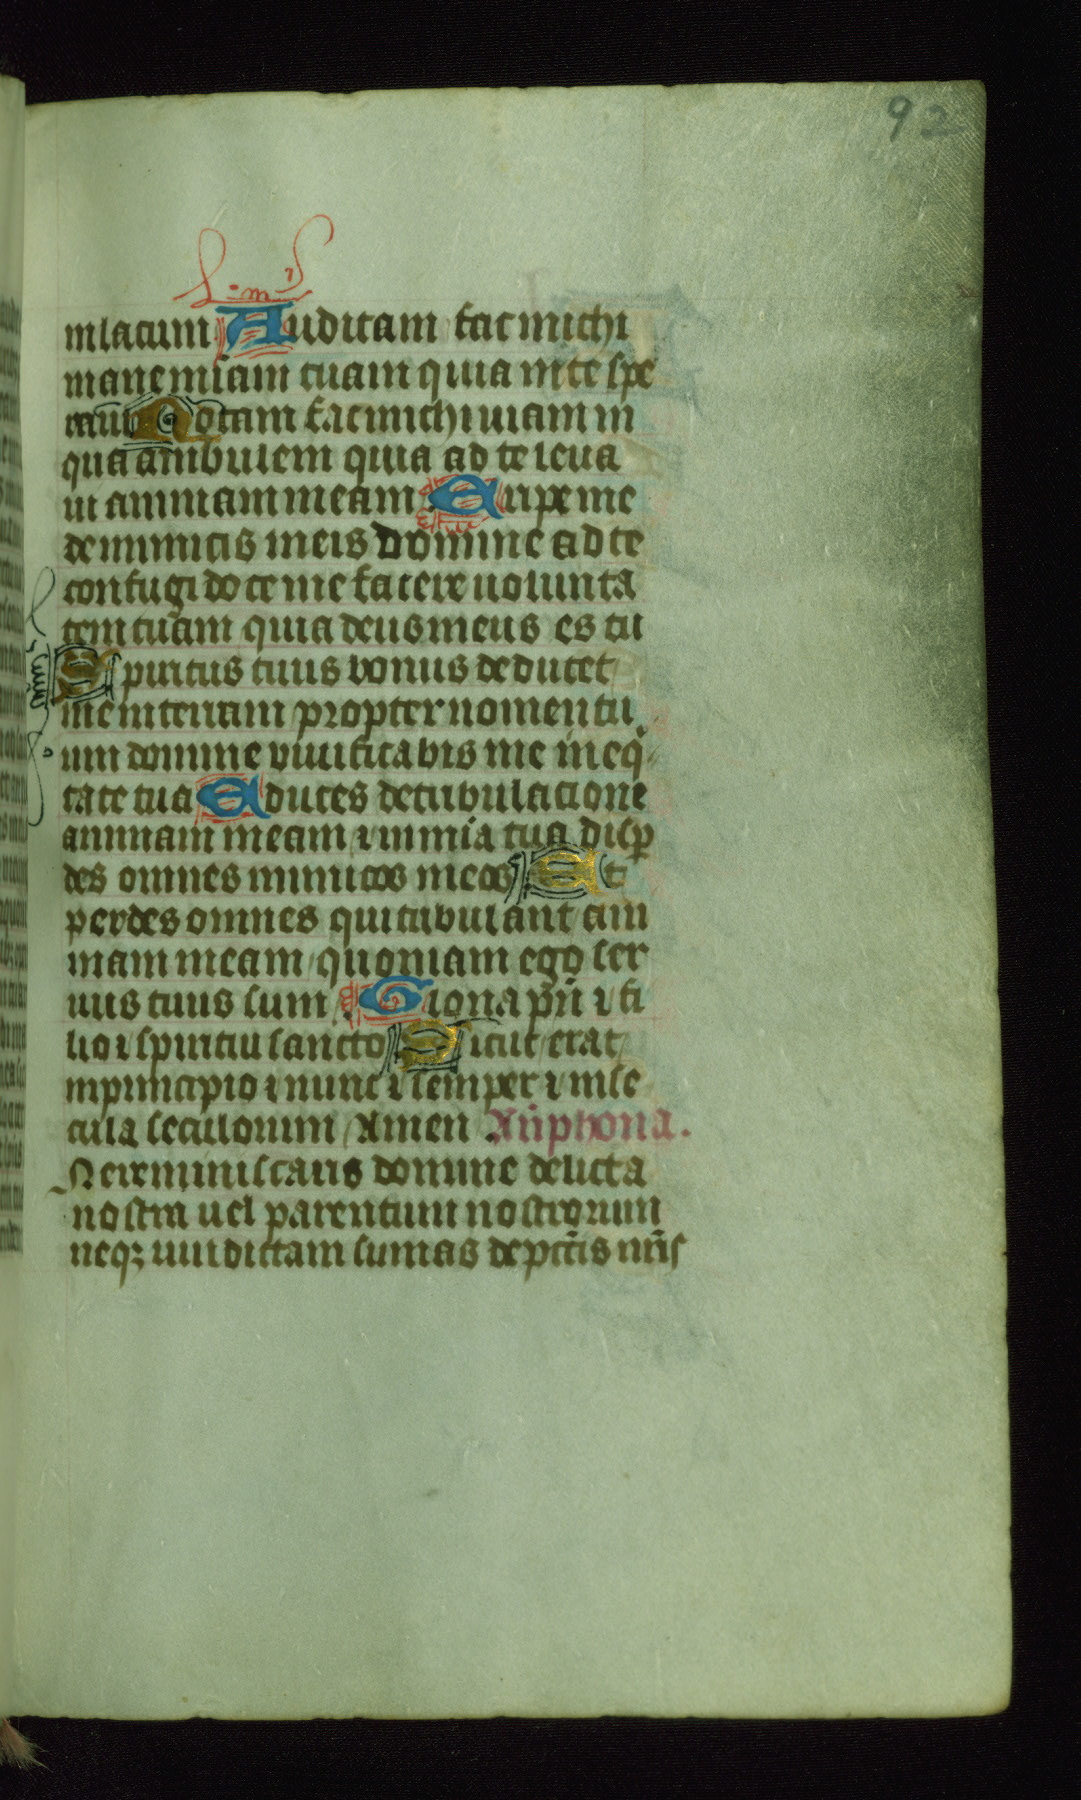 92
in lacum Auditam fac michi
mane miam tuam quia in te spe
raui Notam fac michi uiam in
qua ambulem quia ad te leua
ui animam meam Eripe me
de inimicis meis Domine ad te
confugi doce me facere uolunta
tem tuam quia deus meus es tu
Spiritus tuus bonus deducet
me in terram propter nomen tu
um domine viuificabis me in eq̄
tate tua Educes de tribulacione
animam meam ⁊ in mīa tua disp̄
des omnes inimicos meos Et
perdes omnes qui tribulant ani
mam meam quoniam ego ser
uus tuus sum Gloria pr̄i ⁊ fi
lio ⁊ spiritui sancto Sicut erat
in principio ⁊ nunc ⁊ semper ⁊ in se
cula seculorum Amen An̄phona.
Ne reminiscaris domine delicta
nostra uel parentum nostrorum
neqꝫ uindictam sumas de pcc̄is nr̄is